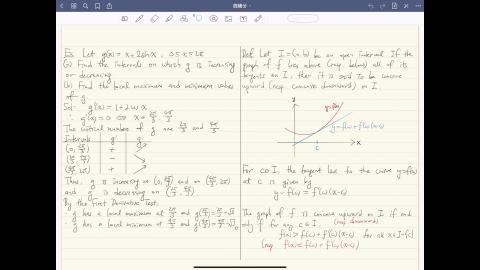 Ex. Let g(x) = x + 2sinx, 0≤x≤2π
(a) Find the intervals on which g is increasing
or decreasing
(b) Find the local maximum and minimum values
of g.
Sol: g'(x) = 1 + 2cosx
∴ g'(x) = 0 ⇔ x = 2π/3, 4π/3
The critical numbers of g are 2π/3 and 4π/3
Intervals g' g
(0, 2π/3) + ↗
(2π/3, 4π/3) − ↘
(4π/3, 2π) + ↗
Thus, g is increasing on (0, 2π/3) and on (4π/3, 2π)
and g is decreasing on (2π/3, 4π/3)
By the First Derivative Test,
g has a local maximum at 2π/3 and g(2π/3) = 2π/3 + √3
g has a local minimum at 4π/3 and g(4π/3) = 4π/3 − √3
Def. Let I = (a,b) be an open interval. If the
graph of f lies above (resp. below) all of its
tangents on I, then it is said to be concave
upward (resp. concave downward) on I.
y
f(x)
y = f(c) + f'(c)(x-c)
c
x
For c∈I, the tangent line to the curve y=f(x)
at c is given by
y = f(c) + f'(c)(x-c)
The graph of f is concave upward on I if and
(resp. downward)
only if for any c∈I,
f(x) > f(c) + f'(c)(x-c) for all x∈I-{c}
(resp. f(x) < f(c) + f'(c)(x-c))